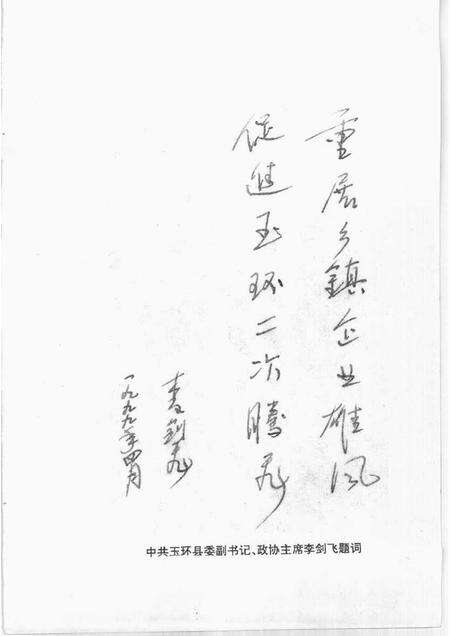 重展乡镇企业雄风
促进玉环二次腾飞
李剑飞
一九九九年四月
中共玉环县委副书记、政协主席李剑飞题词